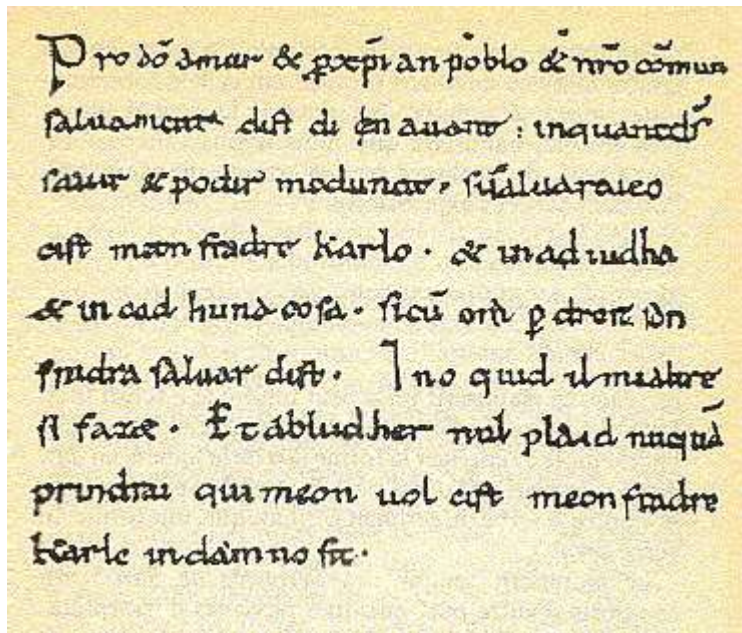 Pro dō amur & p xp̄ian poblo & nr̄o cōmun
saluament dist di en auant. inquantd̄s
sauir & podir medunat. sisaluaraieo
cist meon fradre Karlo. & in ad iudha
& in cad huna cosa. sicū om p dreit son
fradra saluar dist. Ino quid il mialtre
si fazet. Et abludher nul plaid nuquā
prindrai qui meon uol cist meon fradre
Karle in damno sit.